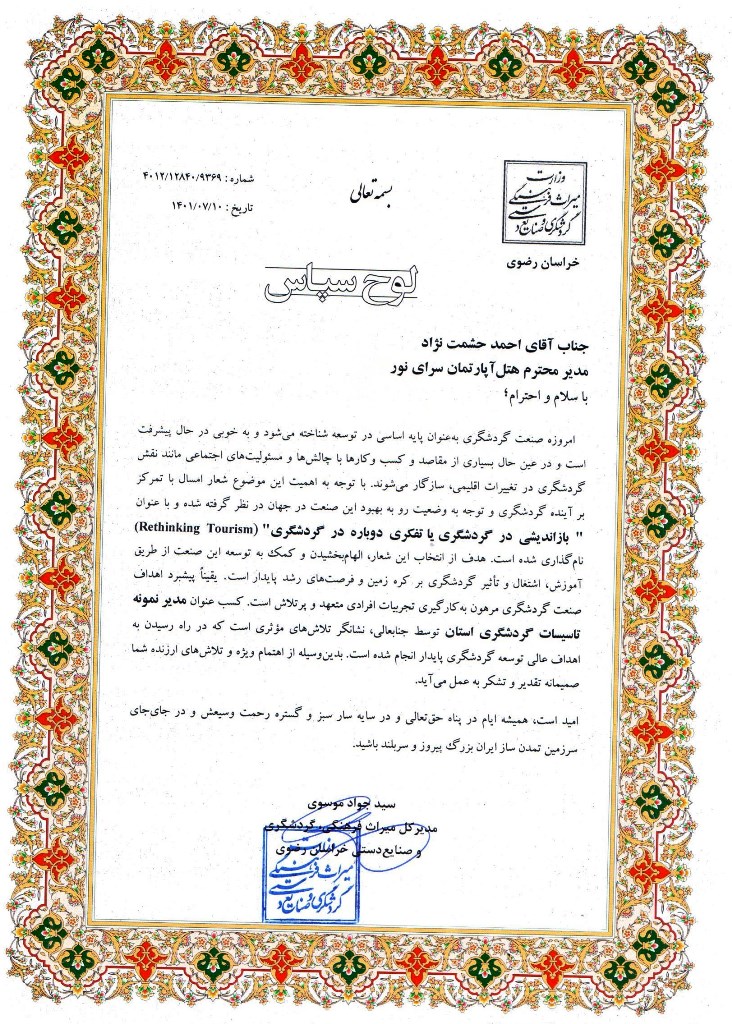 وزارت
میراث فرهنگی
گردشگری و صنایع دستی
خراسان رضوی
بسمه تعالی
شماره : ۴۰۱۲/۱۲۸۴۰/۹۳۶۹
تاریخ : ۱۴۰۱/۰۷/۱۰
لوح سپاس
جناب آقای احمد حشمت نژاد
مدیر محترم هتل‌آپارتمان سرای نور
با سلام و احترام؛
امروزه صنعت گردشگری به‌عنوان پایه اساسی در توسعه شناخته می‌شود و به خوبی در حال پیشرفت
است و در عین حال بسیاری از مقاصد و کسب وکارها با چالش‌ها و مسئولیت‌های اجتماعی مانند نقش
گردشگری در تغییرات اقلیمی، سازگار می‌شوند. با توجه به اهمیت این موضوع شعار امسال با تمرکز
بر آینده گردشگری و توجه به وضعیت رو به بهبود این صنعت در جهان در نظر گرفته شده و با عنوان
" بازاندیشی در گردشگری یا تفکری دوباره در گردشگری" (Rethinking Tourism)
نام‌گذاری شده است. هدف از انتخاب این شعار، الهام‌بخشیدن و کمک به توسعه این صنعت از طریق
آموزش، اشتغال و تأثیر گردشگری بر کره زمین و فرصت‌های رشد پایدار است. یقیناً پیشبرد اهداف
صنعت گردشگری مرهون به‌کارگیری تجربیات افرادی متعهد و پرتلاش است. کسب عنوان مدیر نمونه
تاسیسات گردشگری استان توسط جنابعالی، نشانگر تلاش‌های مؤثری است که در راه رسیدن به
اهداف عالی توسعه گردشگری پایدار انجام شده است. بدین‌وسیله از اهتمام ویژه و تلاش‌های ارزنده شما
صمیمانه تقدیر و تشکر به عمل می‌آید.
امید است، همیشه ایام در پناه حق‌تعالی و در سایه سار سبز و گستره رحمت وسیعش و در جای‌جای
سرزمین تمدن ساز ایران بزرگ پیروز و سربلند باشید.
سید جواد موسوی
مدیرکل میراث فرهنگی، گردشگری
و صنایع‌دستی خراسان رضوی
وزارت
میراث فرهنگی
گردشگری و صنایع دستی